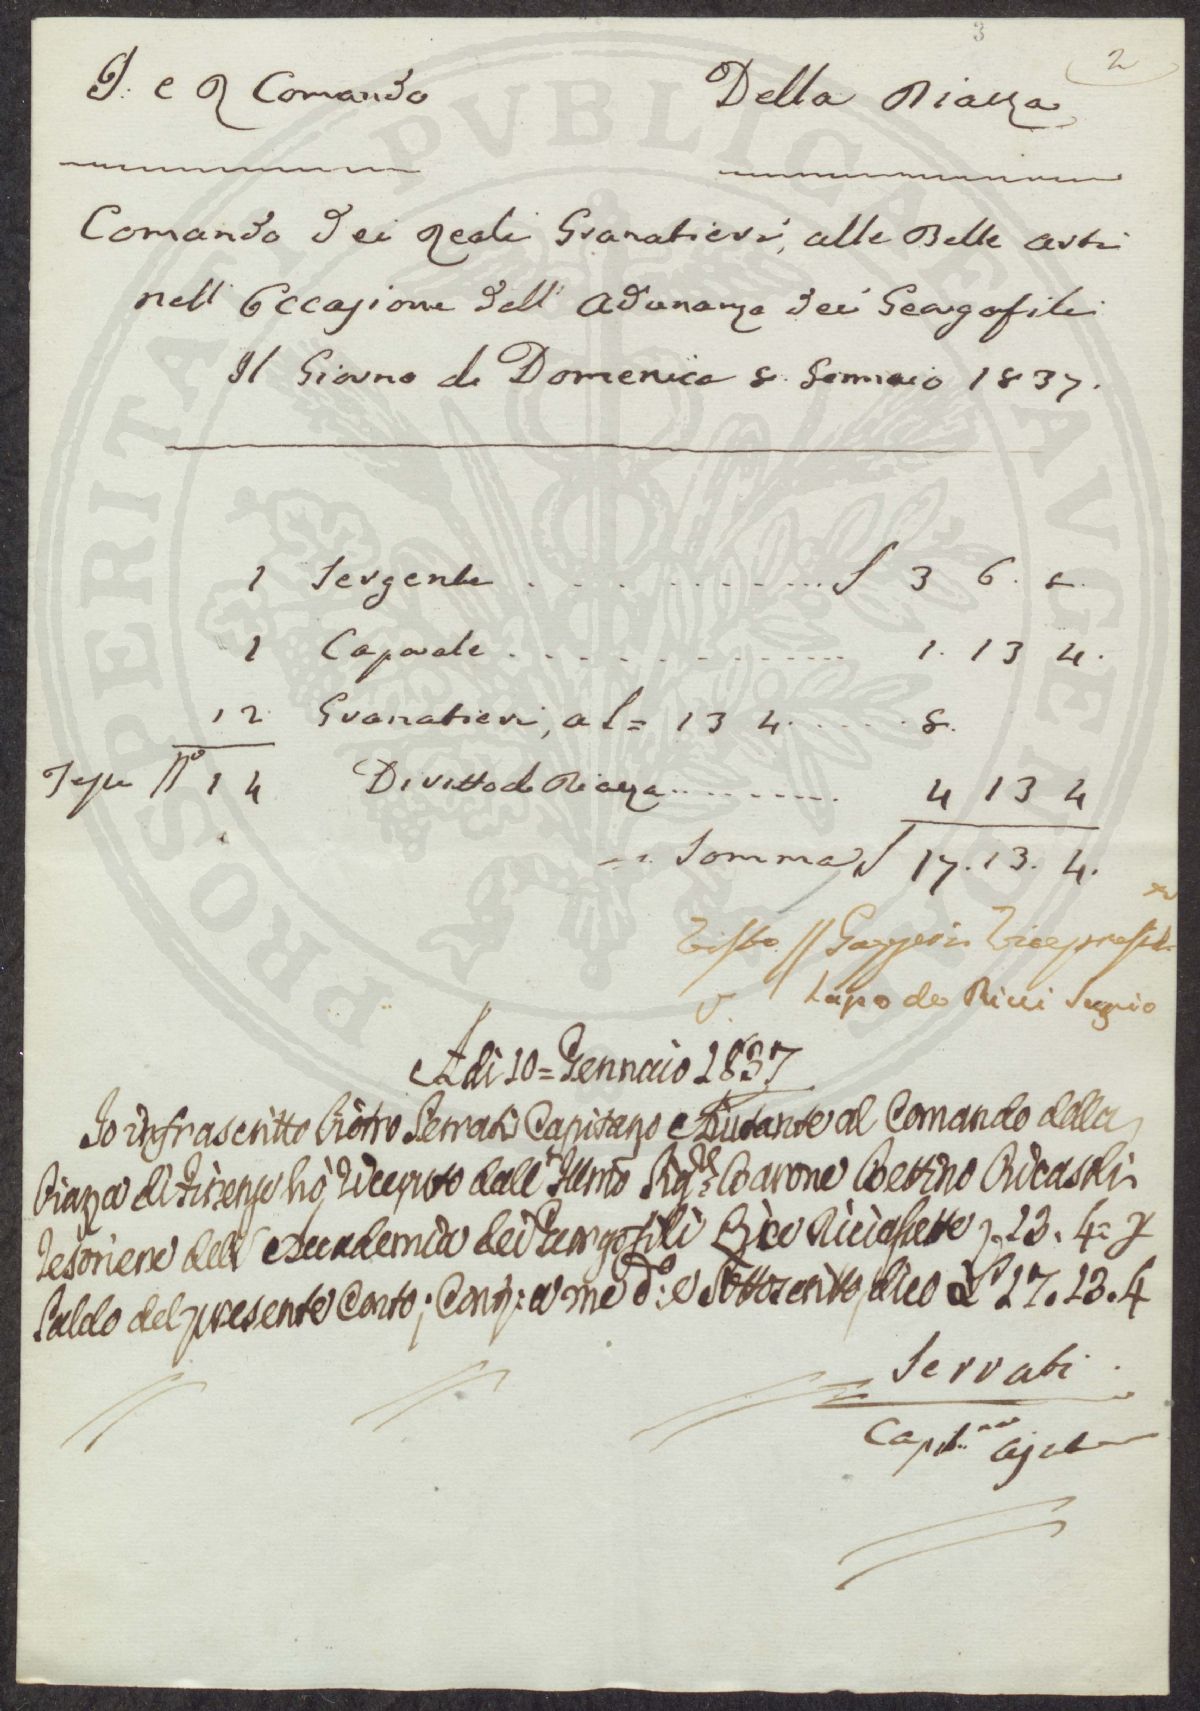 3
2
I: e R Comando Della Piazza
Comando dei Reali Granatieri, alle Belle arti
nell' Occasione dell' Adunanza dei Geargofili
Il Giorno di Domenica 8. Gennaio 1837.
1 Sergente £ 3 6. 8.
1 Caporale 1. 13 4.
12 Granatieri, a £= 13 4. 8.
Teste N° 14 Diritto di Piazza 4 13 4
Somma £ 17. 13. 4.
Visto Gazzeri Vicepresid.
V. Lapo de Ricci Segrio
Adi 10= Gennaio 1837
Io infrascritto Pietro Serrati Capitano Aiutante al Comando della
Piazza di Firenze hò ricevuto dall' Illmo Sig.re Barone Bettino Ricasoli
Tesoriere dell' Accademia dei Georgofili Lire diciasette, 13. 4= p
Saldo del presente Conto; Cont: a me d.o: e Sottoscritto, dico £ 17. 13. 4
Serrati
Capit.no Ajut
PROSPERITATI PVBLICAE AVGENDAE